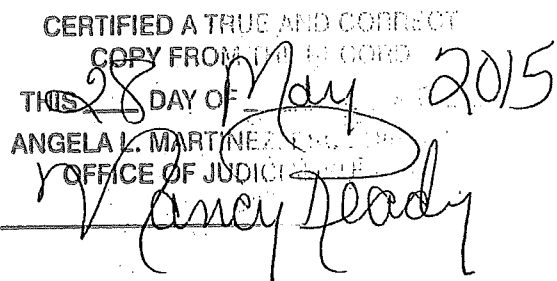 CERTIFIED A TRUE AND CORRECT
COPY FROM THE RECORD
THIS 28 DAY OF May 2015
ANGELA L. MARTINEZ
OFFICE OF JUDICIAL
Nancy Ready